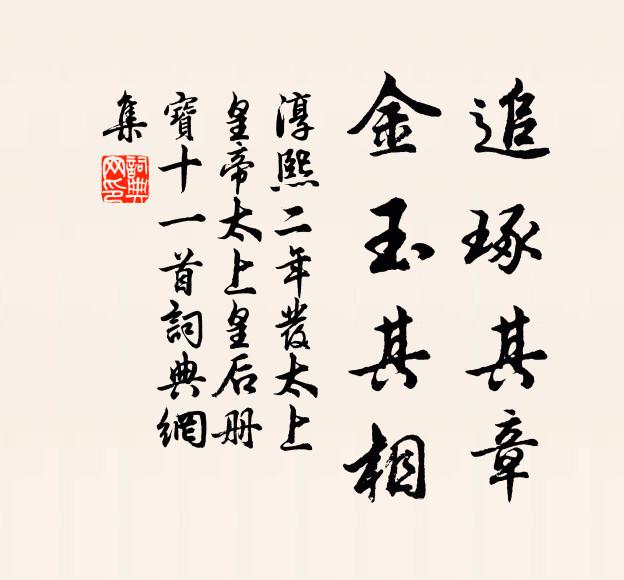 追琢其章
金玉其相
淳熙二年發太上
皇帝太上皇后册
寶十一首詞典網
集
詞典
网印